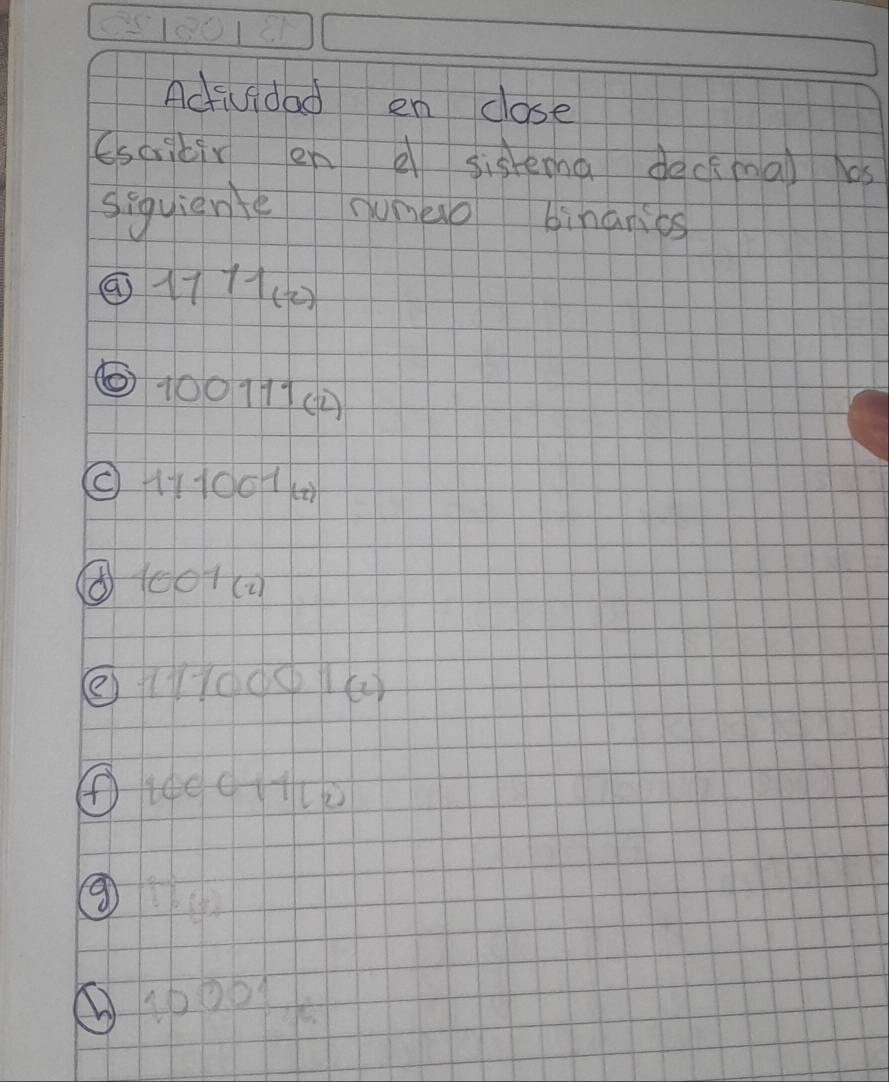 Actividad en clase
Escribir en el sistema decimal los
siguiente numero binarios
a 1111(2)
b 100111(2)
c 111001(2)
d 1001(2)
e 1110001(2)
f 100011(2)
g 11(2)
h 10001